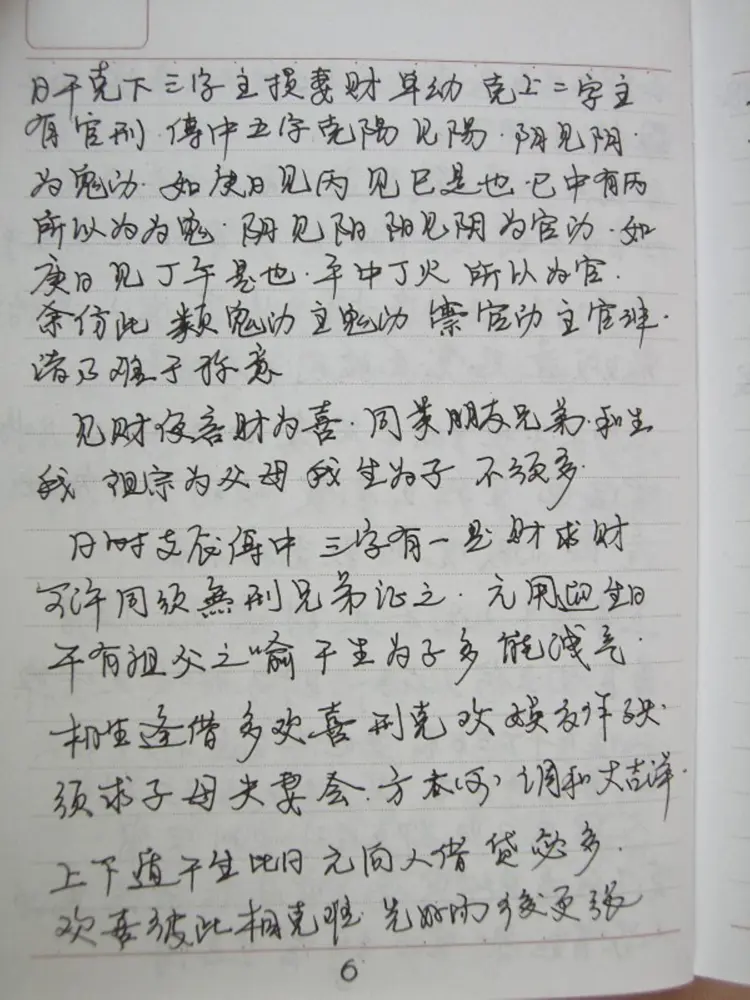 日干克下三字主损妻财卑幼 克上二字主
有官刑·傳中五字克陽见陽·阴见阴·
为鬼动·如庚日见丙见巳是也·巳中有丙
所以为为鬼·阴见阳 阳见阴为官动·如
庚日见丁午是也·午中丁火所以为官·
余仿此 类鬼动主鬼动 官动主官
难于称意
见财便言财为喜·同类朋友兄弟·和生
我 祖宗为父母 我生为子 不须多·
日时支辰傳中 三字有一是财求财
可许同须無刑兄弟
干有祖父之喻 干生为子多能减气·
相生逢借多欢喜 刑克
须求子母夫妻会·方 调和大吉祥·
上下 干生比日元向人借贷必多·
欢喜彼此相克 先好而後更张
6